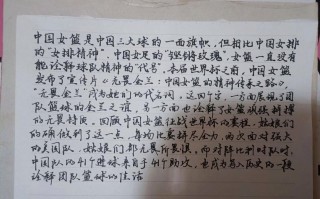 中国女篮是中国三大球的一面旗帜，但相比中国女排
的“女排精神”，中国女足的“铿锵玫瑰”，女篮一直没有能
诠释球队精神的“代号”。本届世界杯之前，中国女篮
发布了宣传片《无畏金兰：中国女篮的精神传承之路》，
“无畏金兰”成为她们的代名词。这四个字，一方面展现了团
队篮球的金兰之谊，另一方面也诠释了女篮顽强拼搏
的无畏特质。回顾中国女篮征战世界杯的赛程，姑娘们
的确做到了这一点，每场比赛拼尽全力，两次面对强大
的美国队，姑娘们都无所畏惧，而对阵比利时队时，
中国队的41个进球来自于41个助攻，也成为载入历史的一段
诠释团队篮球的佳话